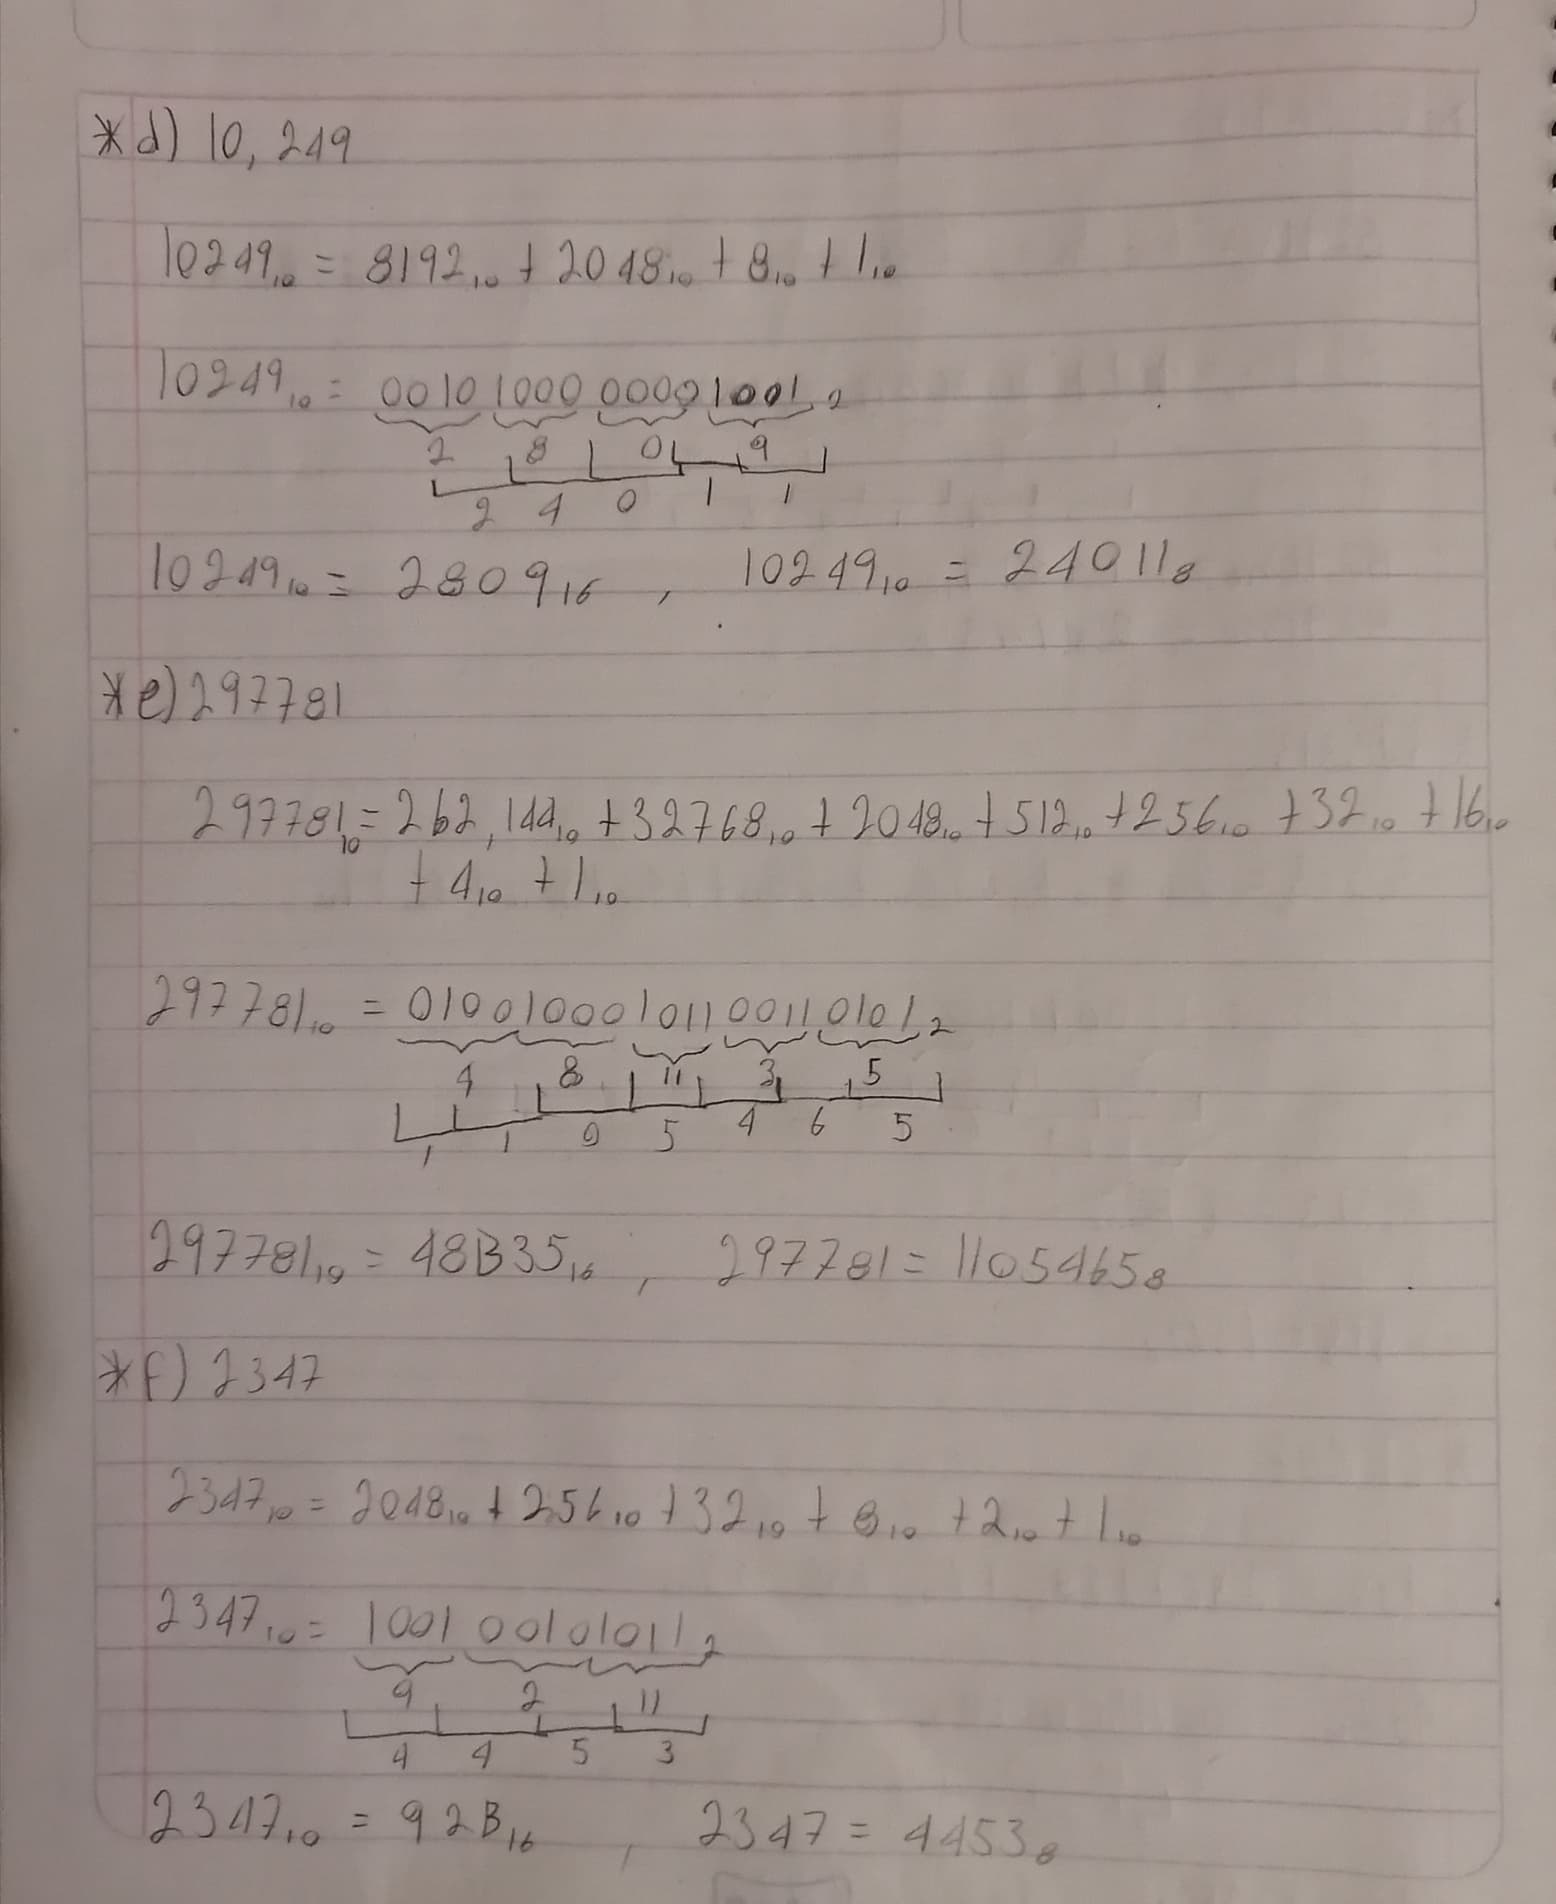 * d) 10,249
10249₁₀ = 8192₁₀ + 2048₁₀ + 8₁₀ + 1₁₀
10249₁₀ = 0010 1000 0000 1001₂
2 8 0 9
2 4 0 1 1
10249₁₀ = 2809₁₆ , 10249₁₀ = 24011₈
* e) 297781
297781₁₀ = 262,144₁₀ + 32768₁₀ + 2048₁₀ + 512₁₀ + 256₁₀ + 32₁₀ + 16₁₀
+ 4₁₀ + 1₁₀
297781₁₀ = 01001000 1011 0011 0101₂
4 8 11 3 5
1 1 0 5 4 6 5
297781₁₀ = 48B35₁₆ , 297781 = 1105465₈
* f) 2347
2347₁₀ = 2048₁₀ + 256₁₀ + 32₁₀ + 8₁₀ + 2₁₀ + 1₁₀
2347₁₀ = 1001 00101011₂
9 2 11
4 4 5 3
2347₁₀ = 92B₁₆ , 2347 = 4453₈